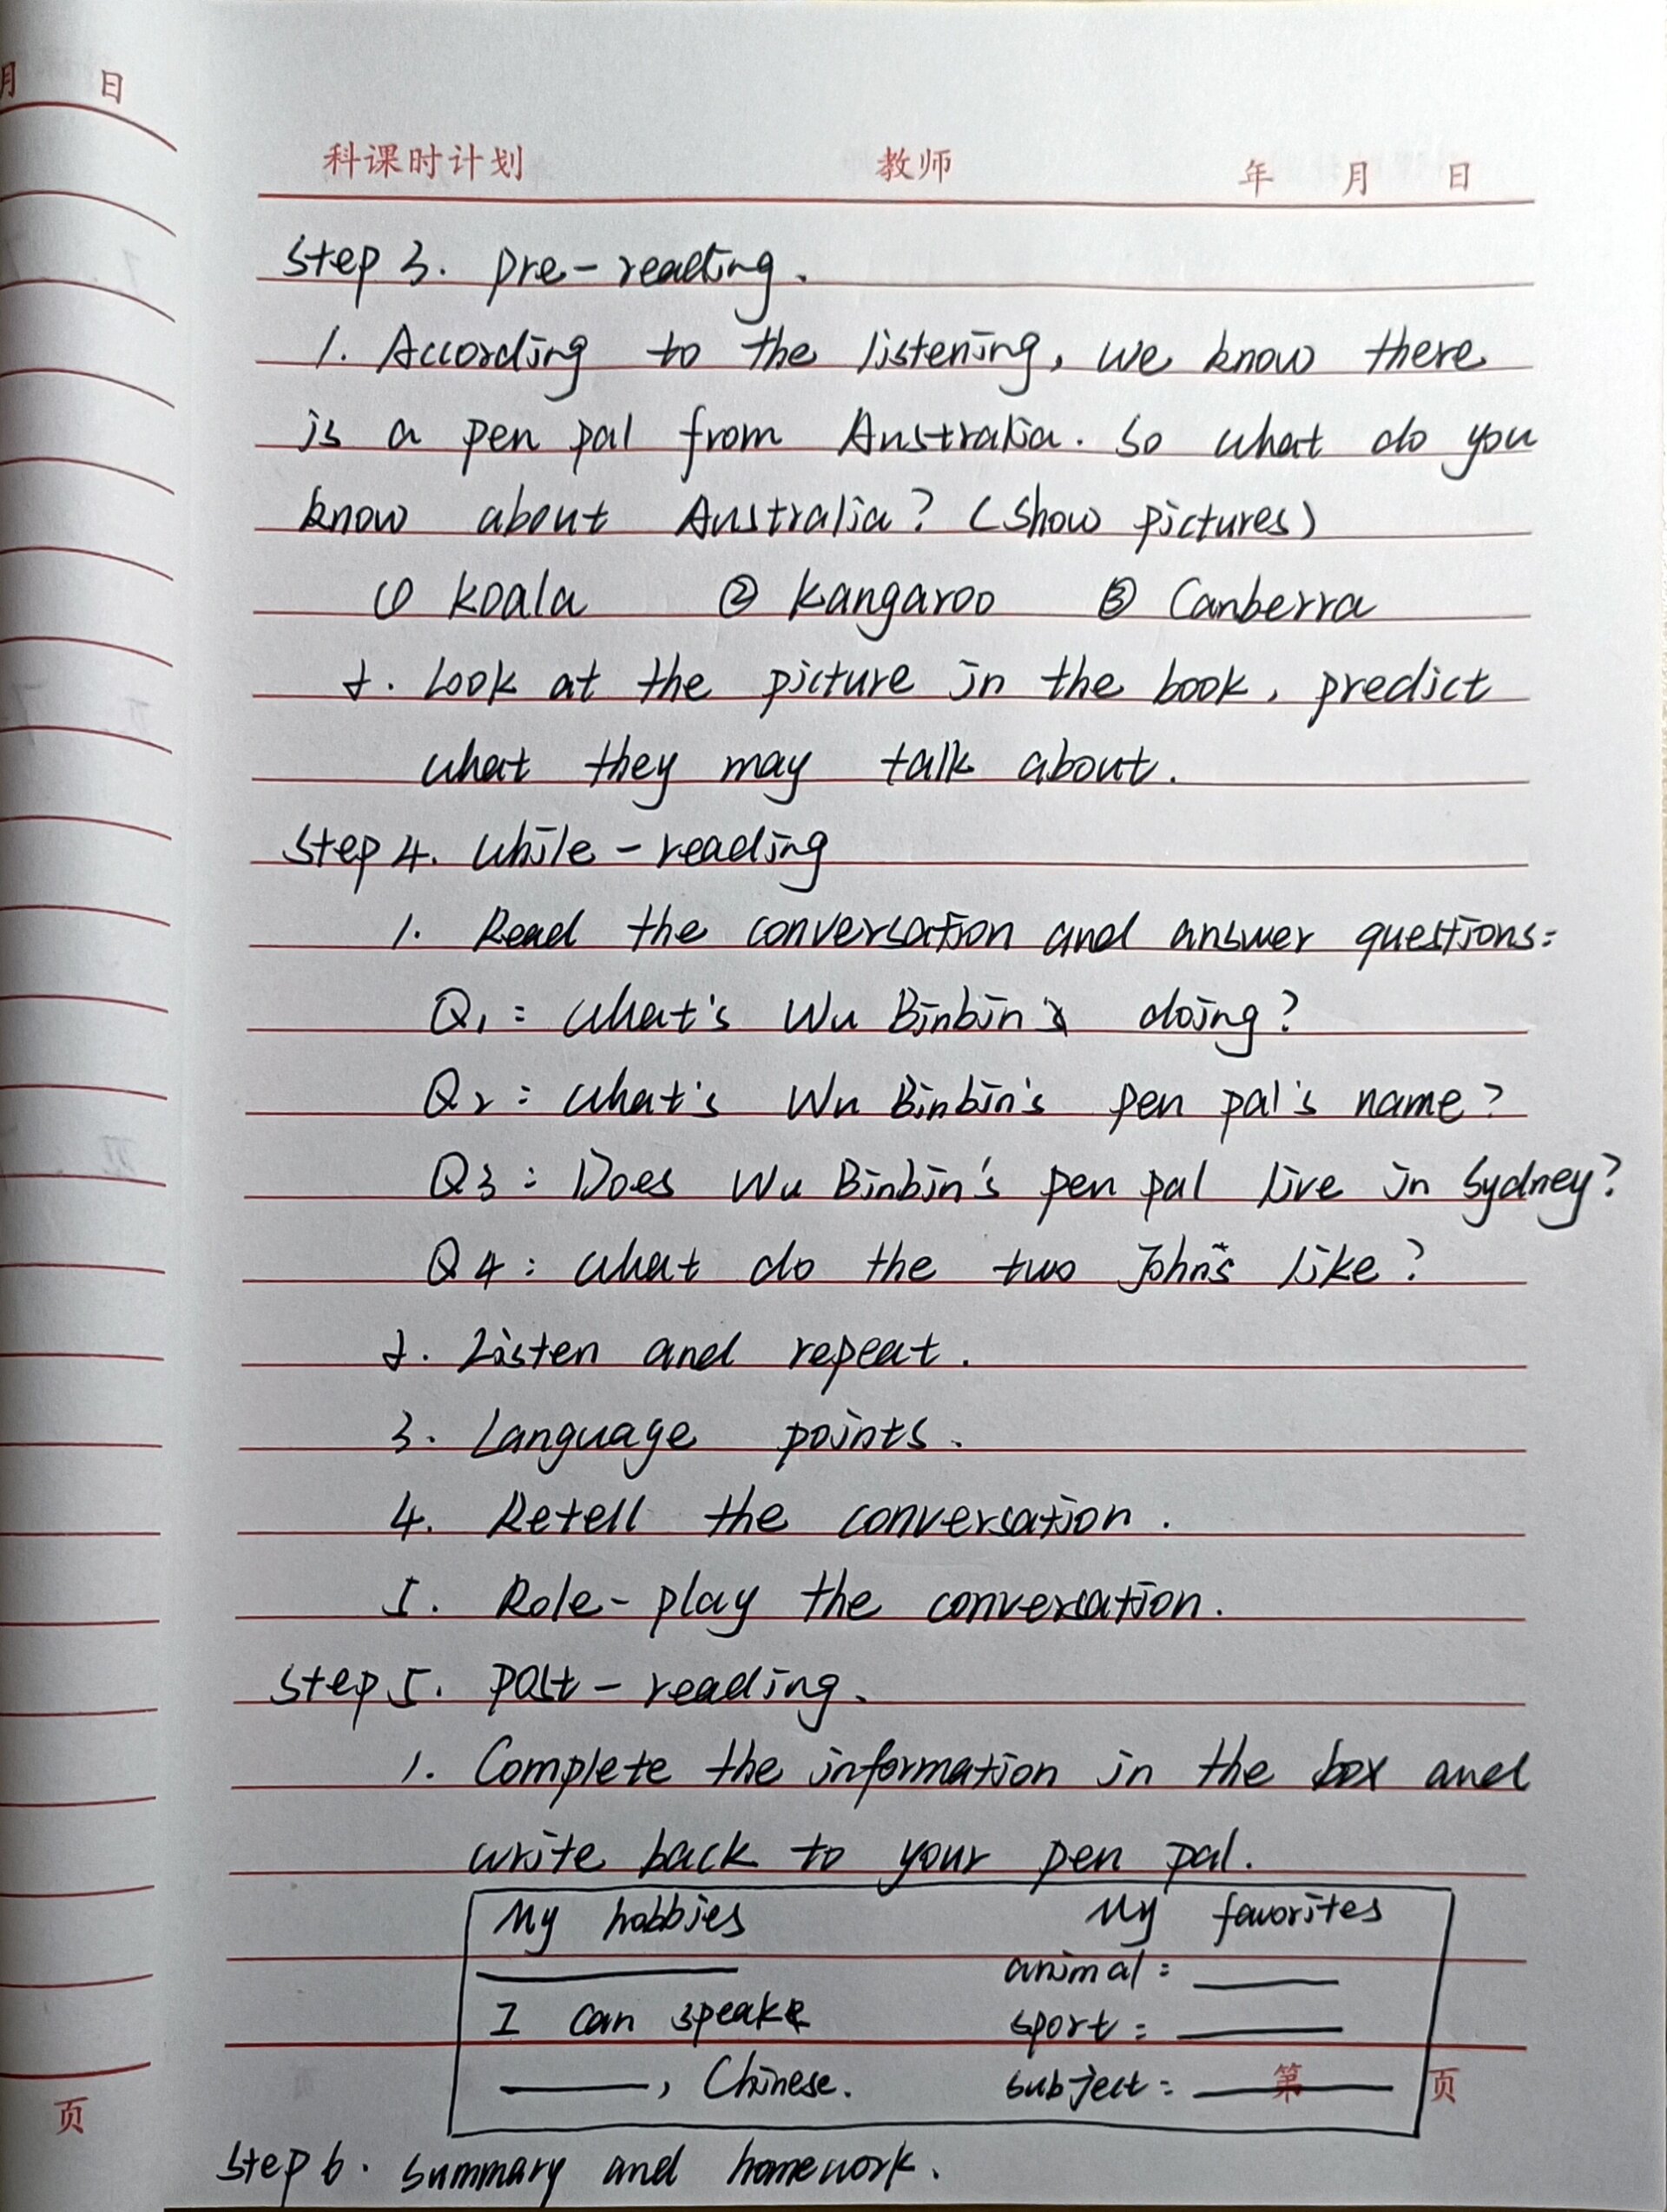 月 日
科课时计划 教师 年 月 日
Step 3. Pre-reading.
1. According to the listening, we know there
is a pen pal from Australia. So what do you
know about Australia? (Show pictures)
① koala ② kangaroo ③ Canberra
2. Look at the picture in the book, predict
what they may talk about.
Step 4. While-reading
1. Read the conversation and answer questions:
Q1: What's Wu Binbin doing?
Q2: What's Wu Binbin's pen pal's name?
Q3: Does Wu Binbin's pen pal live in Sydney?
Q4: What do the two Johns like?
2. Listen and repeat.
3. Language points.
4. Retell the conversation.
5. Role-play the conversation.
Step 5. Post-reading.
1. Complete the information in the box and
write back to your pen pal.
My hobbies My favorites
animal:
I can speak sport:
, Chinese. subject:
第 页
页
Step 6. Summary and homework.